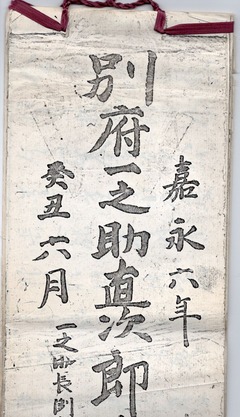 嘉永六年
別府一之助直次郎
癸丑六月